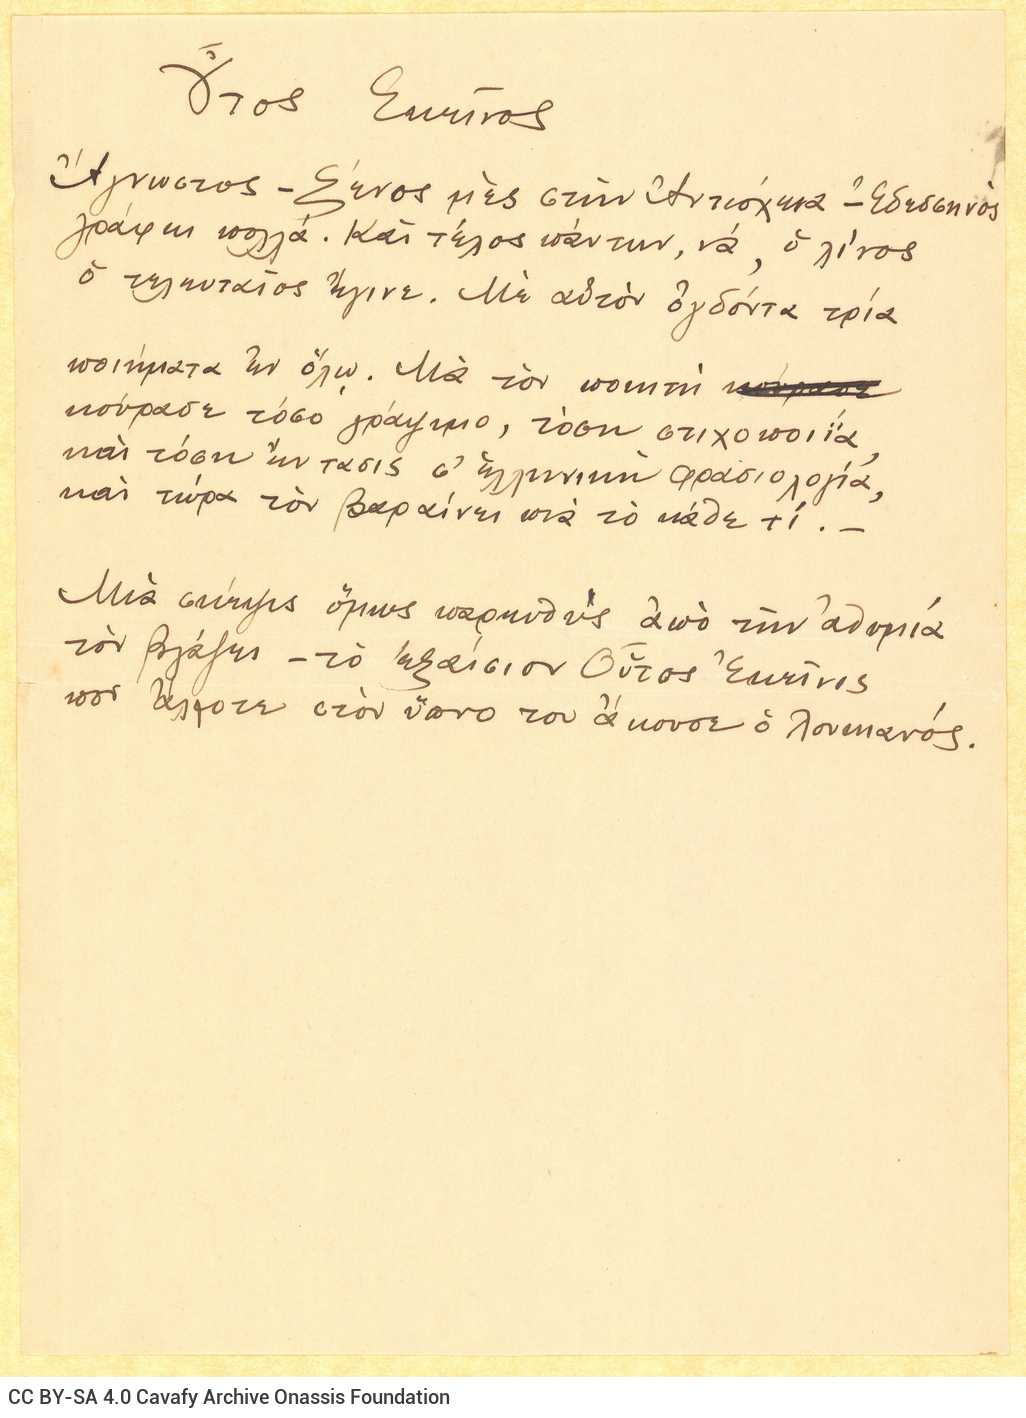 Οὗτος Ἐκεῖνος
Ἄγνωστος – ξένος μὲς στὴν Ἀντιόχεια – Ἐδεσσηνὸς
γράφει πολλά. Καὶ τέλος πάντων, νά, ὁ λίνος
ὁ τελευταῖος ἔγινε. Μὲ αὐτὸν ὀγδόντα τρία
ποιήματα ἐν ὅλῳ. Μὰ τὸν ποιητὴ κούρασε
κούρασε τόσο γράψιμο, τόση στιχοποιΐα,
καὶ τόση ἔντασις σ' ἑλληνικὴ φρασιολογία,
καὶ τώρα τὸν βαραίνει πιὰ τὸ κάθε τί. –
Μιὰ σκέψις ὅμως παρευθὺς ἀπὸ τὴν ἀθυμία
τὸν βγάζει – τὸ ἐξαίσιον Οὗτος Ἐκεῖνος
ποῦ ἄλλοτε στὸν ὕπνο του ἄκουσε ὁ Λουκιανός.
CC BY-SA 4.0 Cavafy Archive Onassis Foundation